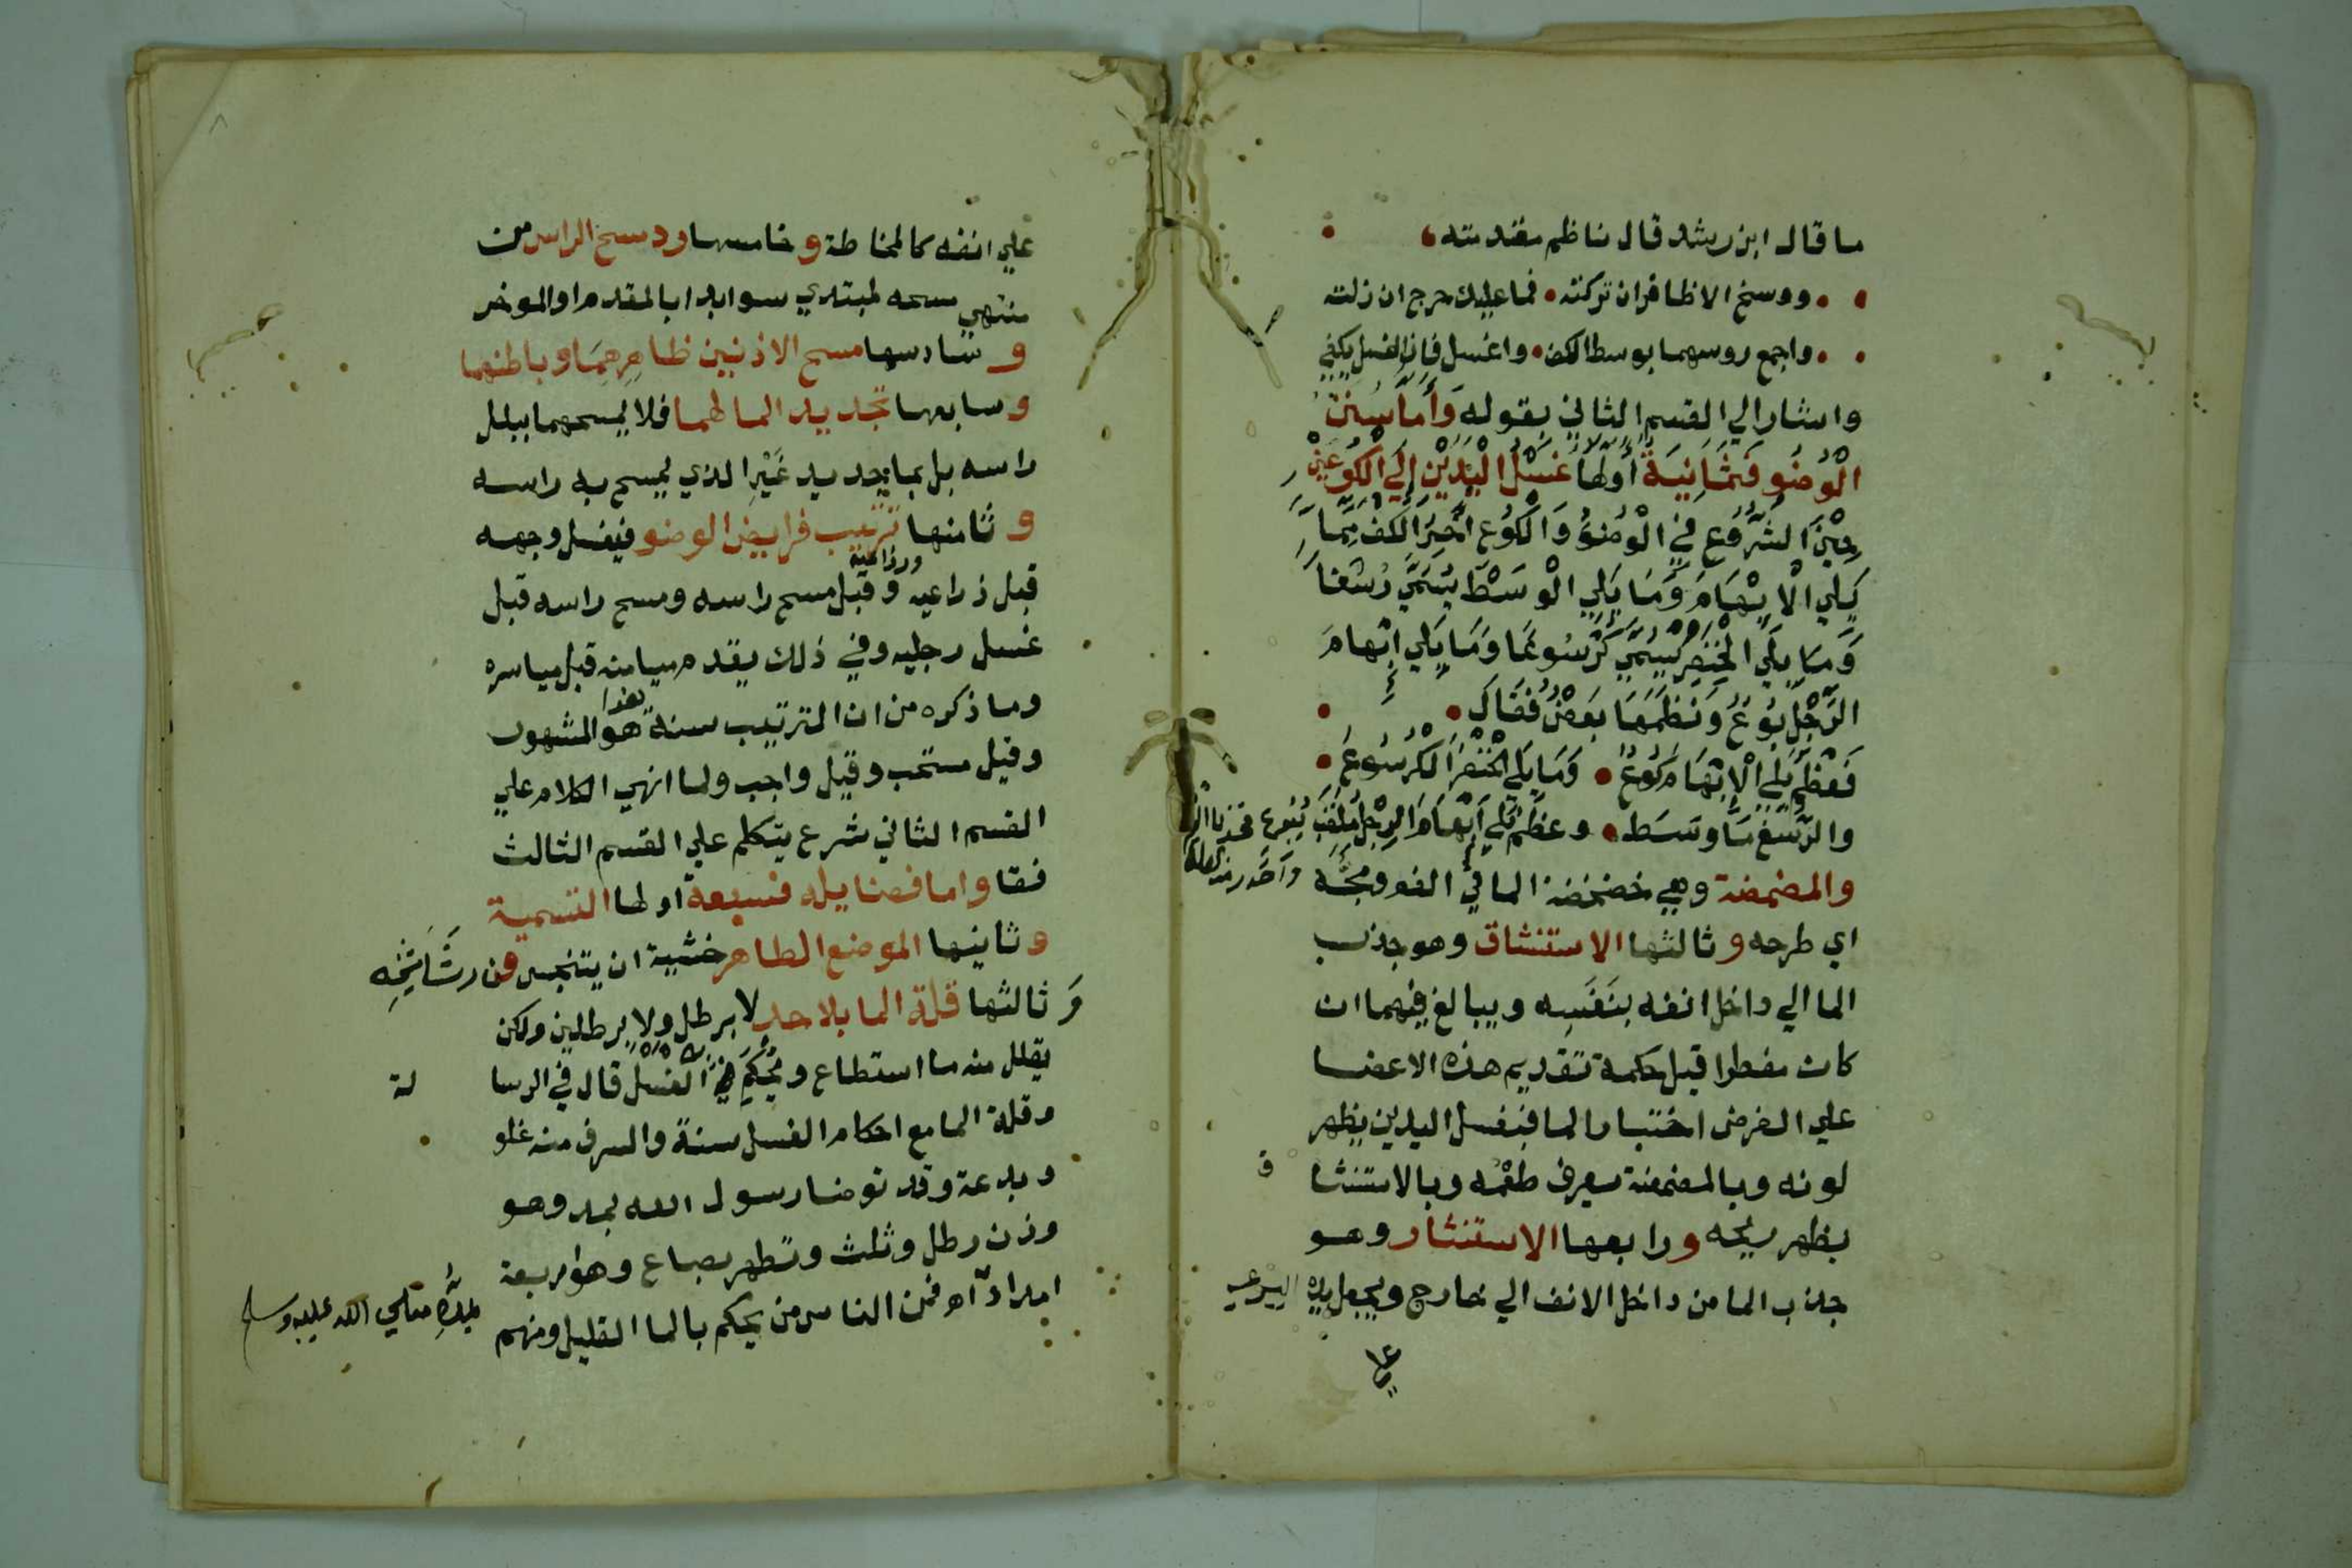 ما قال ابن رشد قال ناظم مقدمته
ووسخ الاظافر ان تركته • فما عليك حرج ان زلته
واجمع روسهما بوسط الكف • واغسل فان الغسل يكفي
واشار الي القسم الثاني بقوله وَأَمَّا سُنَنُ
الْوُضُو فَثَمَانِيَةٌ أَوَّلُهَا غَسْلُ الْيَدَيْنِ إِلَي الْكُوعَيْنِ
حِيْنَ الشُّرُوعِ فِي الْوُضُوُ وَالْكُوعُ آخِرُ الْكَفِّ مِمَّا
يَلِي الْاِبْهَامَ وَمَا يَلِي الْوَسَطَ يُسَمَّي رُسْغًا
وَمَا يَلِي الْخِنْصِرَ يُسَمَّي كُرْسُوعًا وَمَا يَلِي ابْهَامَ
الرِّجْلِ بُوعٌ وَنَظَمَهَا بَعْضُ فَقَالَ •
فَعَظْمٌ يَلِي الْاِبْهَامَ كُوعٌ • وَمَا يَلِي الْخِنْصِرَ الْكُرْسُوعُ •
والرُّسْغُ مَا وَسَطَ • وعَظْمٌ يَلِي ابْهَامَ الرِّجْلِ مُلَقَّبٌ بِبُوعٍ فخذ بالعلم
واحذر من الغلط
والمضمضة وهي خضخضة الما في الفم ومَجُّه
اي طرحه و ثالثها الاستنشاق وهو جذب
الما الي داخل انفه بنَفَسِه ويبالغ فيهما ان
كان مفطرا قيل حكمة تقديم هذه الاعضا
علي الفرض اختبار الما فبغسل اليدين يظهر
لونه وبالمضمضة يعرف طعْمُه وبالاستنشا ق
يظهر ريحه ورابعها الاستنثار وهو
جذب الما من داخل الانف الي خارج ويجعل يده اليسري
علي
علي انفه كالمخاطة و خامسها رد مسح الراس من
منتهي مسحه لمبتدي سوا بدا بالمقدم او الموخر
و سادسها مسح الاذنين ظاهرِهِمَا وباطنهما
وسابعها تجديد الما لهما فلا يمسحهما ببلل
راسه بل بما جديد غَيْرِ الذي يمسح به راسه
و ثامنها ترتيب فرايض الوضو فيغسل وجهه
قبل ذراعيه وذراعيه قبل مسح راسه ومسح راسه قبل
غسل رجليه وفي ذلك يقدم ميامنه قبل مياسره
وما ذكره من ان الترتيب سنة هو المشهور
وقيل مستحب وقيل واجب ولما انهي الكلام علي
القسم الثاني شرع يتكلم علي القسم الثالث
فقا واما فضايله فسبعة اولها التسمية
و ثانيها الموضع الطاهر خشية ان يتنجس من رشاشِه
وَ ثالثها قلة الما بلا حد لا برطل ولا برطلين ولكن
يقلل منه ما استطاع ويُحْكِمُ الغسل قال في الرسا لة
وقلة الما مع احكام الغسل سنة والسرف منه غلو
وبدعة وقد توضا رسول الله بمد وهو
وزن رطل وثلث وتطهر بصاع وهو اربعة
امداد اه فمن الناس من يحكم بالما القليل ومنهم
بِمُدِّهِ صلي الله عليه وسلم